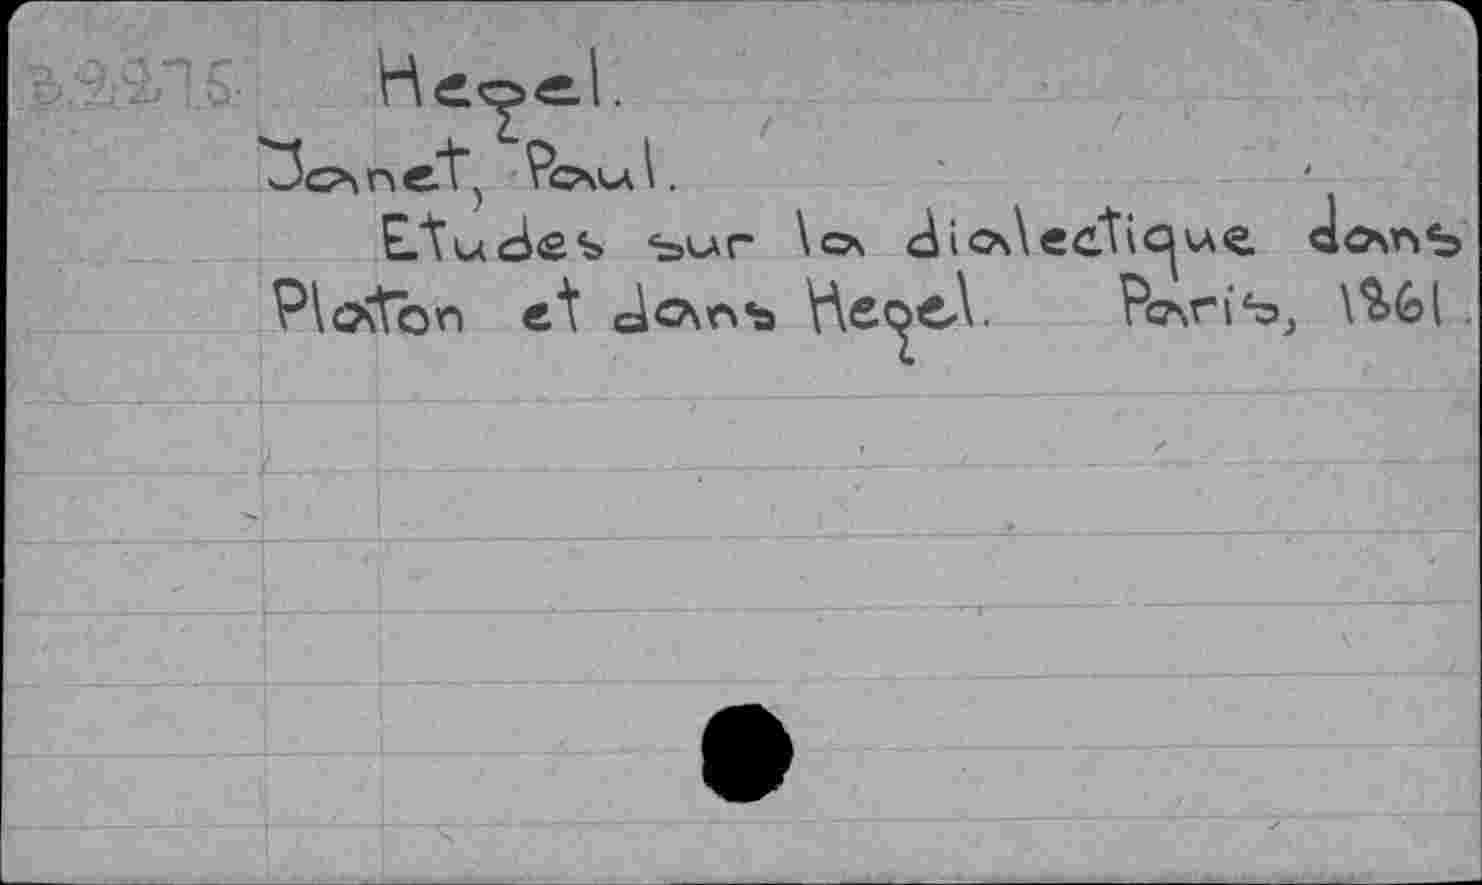 Hegel.
Janet, Paul.
Etudes sur la dialectique dans
Platon et dans Hegel. Paris, 1861.